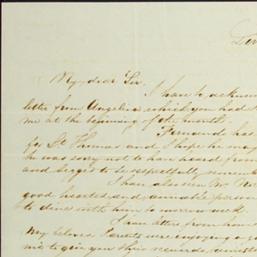 My dear Sir.
I have to acknow
letter from Angelica which you had
me at the beginning of the month.
Fernando has
for St Thomas and I hope he may
he was sorry not to have heard from
and begged to be respectfully remem
I have also seen Mr
good hearted and amiable person
to dine with him to morrow
I have letters from
My beloved Parents are enjoying a
me to give you their regards,